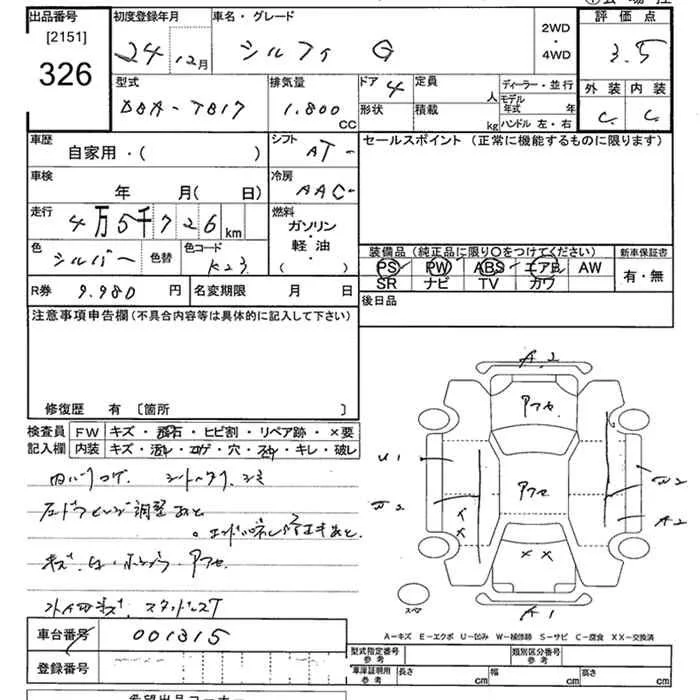 出品番号 初度登録年月 車名・グレード 2WD・4WD 評価点
[2151]
326 24年12月 シルフィ G 3.5
型式 排気量 ドア 4 定員 人 ディーラー・並行 外装 内装
DBA-TB17 1.800 CC 形状 積載 kg モデル年式 年 ハンドル 左・右 C C
車歴 自家用・( ) シフト AT セールスポイント (正常に機能するものに限ります)
車検 年 月( 日) 冷房 AAC
走行 4万5千726km 燃料 ガソリン・軽油・( )
色 シルバー 色替 色コード K23 装備品 (純正品に限り○をつけてください) 新車保証書
PS PW ABS エアB AW 有・無
SR ナビ TV カワ
R券 9.980 円 名変期限 月 日 後日品
注意事項申告欄 (不具合内容等は具体的に記入して下さい)
修復歴 有 [箇所 ]
検査員 FW キズ・飛石・ヒビ割・リペア跡・×要
記入欄 内装 キズ・汚れ・コゲ・穴・スレ・キレ・破レ
A2
アフセ
U1
アフセ
A2
××
A1
スペア
A-キズ E-エクボ U-凹み W-補修跡 S-サビ C-腐食 XX-交換済
車台番号 001315 型式指定番号 参考 類別区分番号 参考
登録番号 車庫証明用 参考 長さ cm 幅 cm 高さ cm
希望出品コーナー